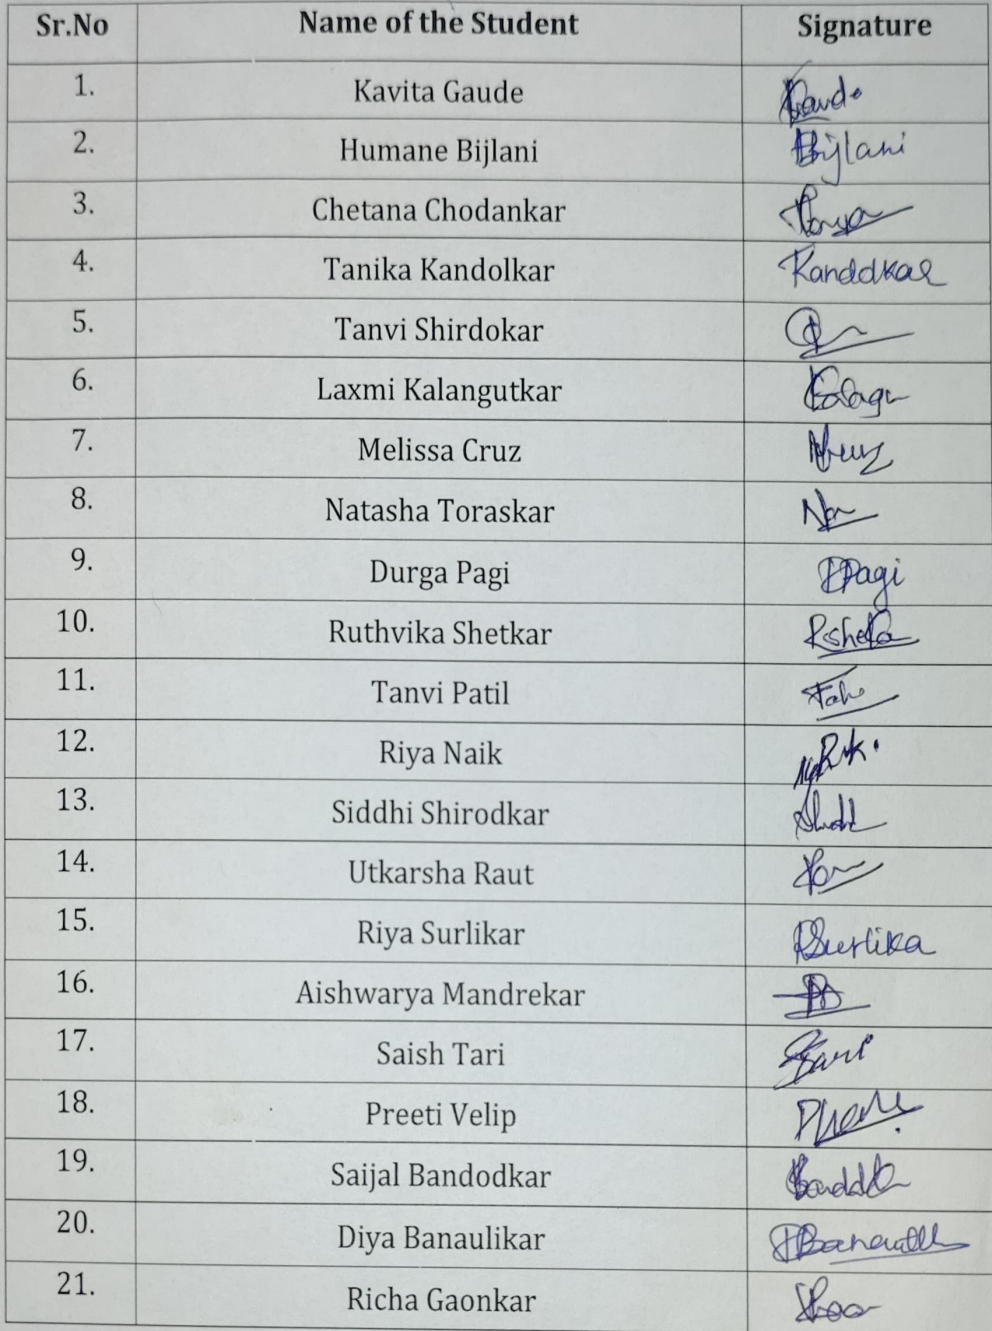 Sr.No Name of the Student Signature
1. Kavita Gaude
2. Humane Bijlani Bijlani
3. Chetana Chodankar
4. Tanika Kandolkar
5. Tanvi Shirdokar
6. Laxmi Kalangutkar
7. Melissa Cruz
8. Natasha Toraskar
9. Durga Pagi DPagi
10. Ruthvika Shetkar
11. Tanvi Patil
12. Riya Naik
13. Siddhi Shirodkar
14. Utkarsha Raut
15. Riya Surlikar RSurlika
16. Aishwarya Mandrekar
17. Saish Tari
18. Preeti Velip
19. Saijal Bandodkar
20. Diya Banaulikar
21. Richa Gaonkar